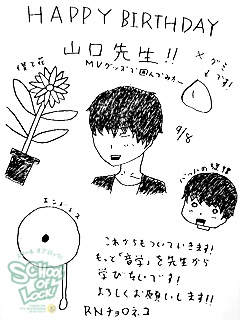 HAPPY BIRTHDAY
山口先生!!
×グミ
もです!
MVグッズで囲んでみた〜
僕と花
9/8
いつもの妄想
エンドレス
SCHOOL OF LOCK!
これからもついていきます!
もっと「音学」を先生から
学びたいです!
よろしくお願いします!!
RNチョロネコ